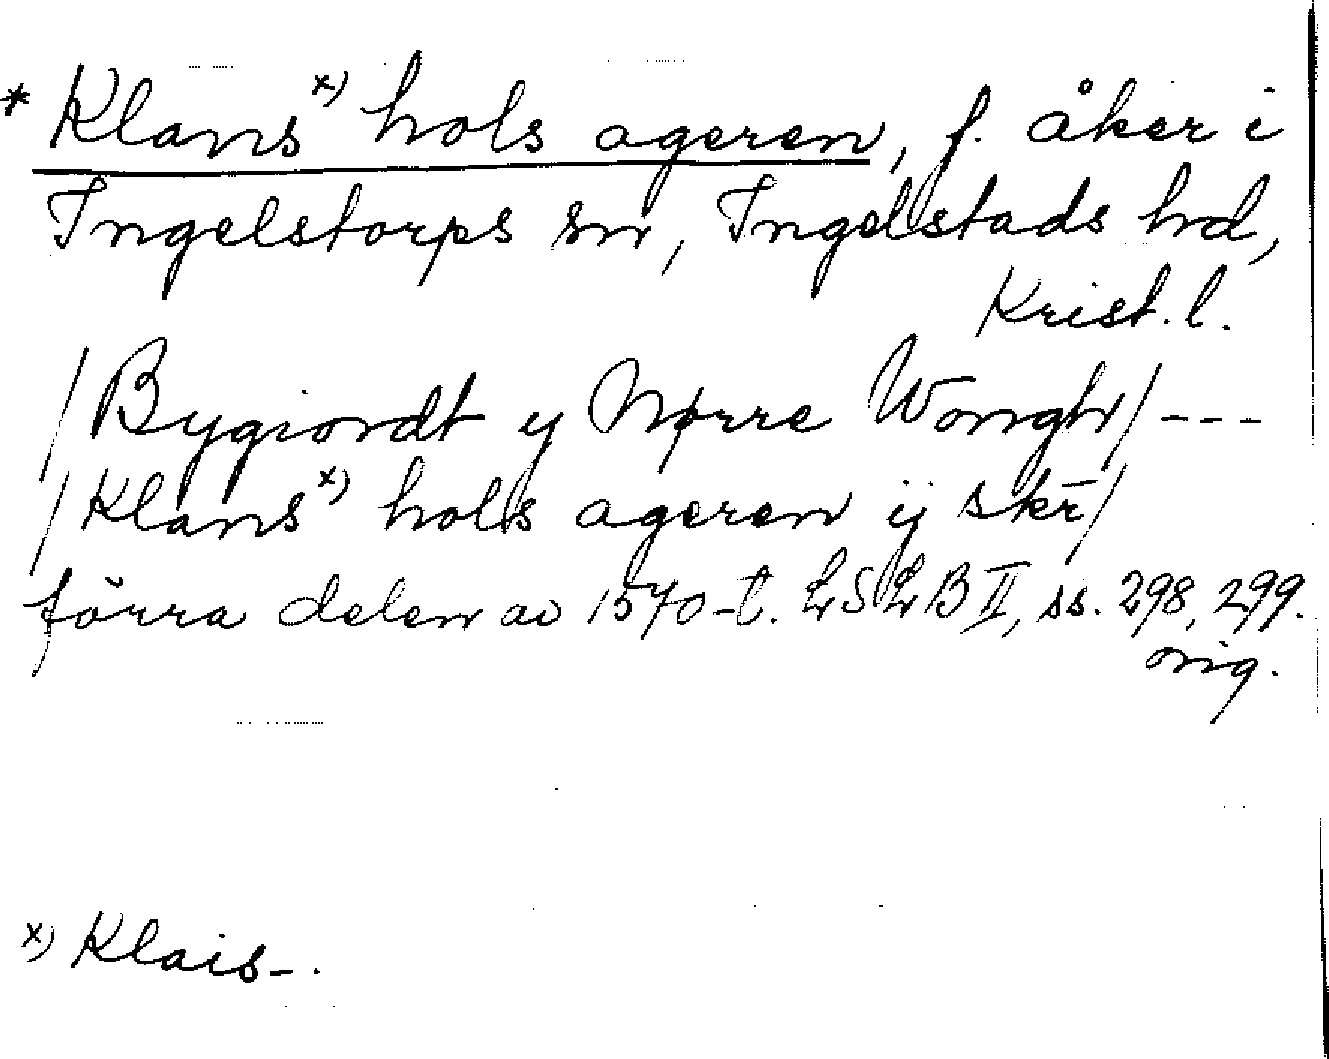 * Klans x) hols ageren, f. åker i
Ingelstorps sn, Ingelstads hd,
Krist. l.
/Bygiordt y Nørre Wongh/ ---
/Klans x) hols ageren ij skr̄/
förra delen av 1570-t. LSLB II, ss. 298, 299.
orig.
x) Klais-.